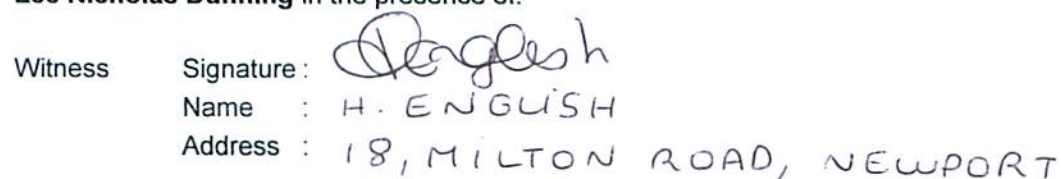 Lee Nicholas Dunning in the presence of:
Witness Signature :
Name : H. ENGLISH
Address : 18, MILTON ROAD, NEWPORT